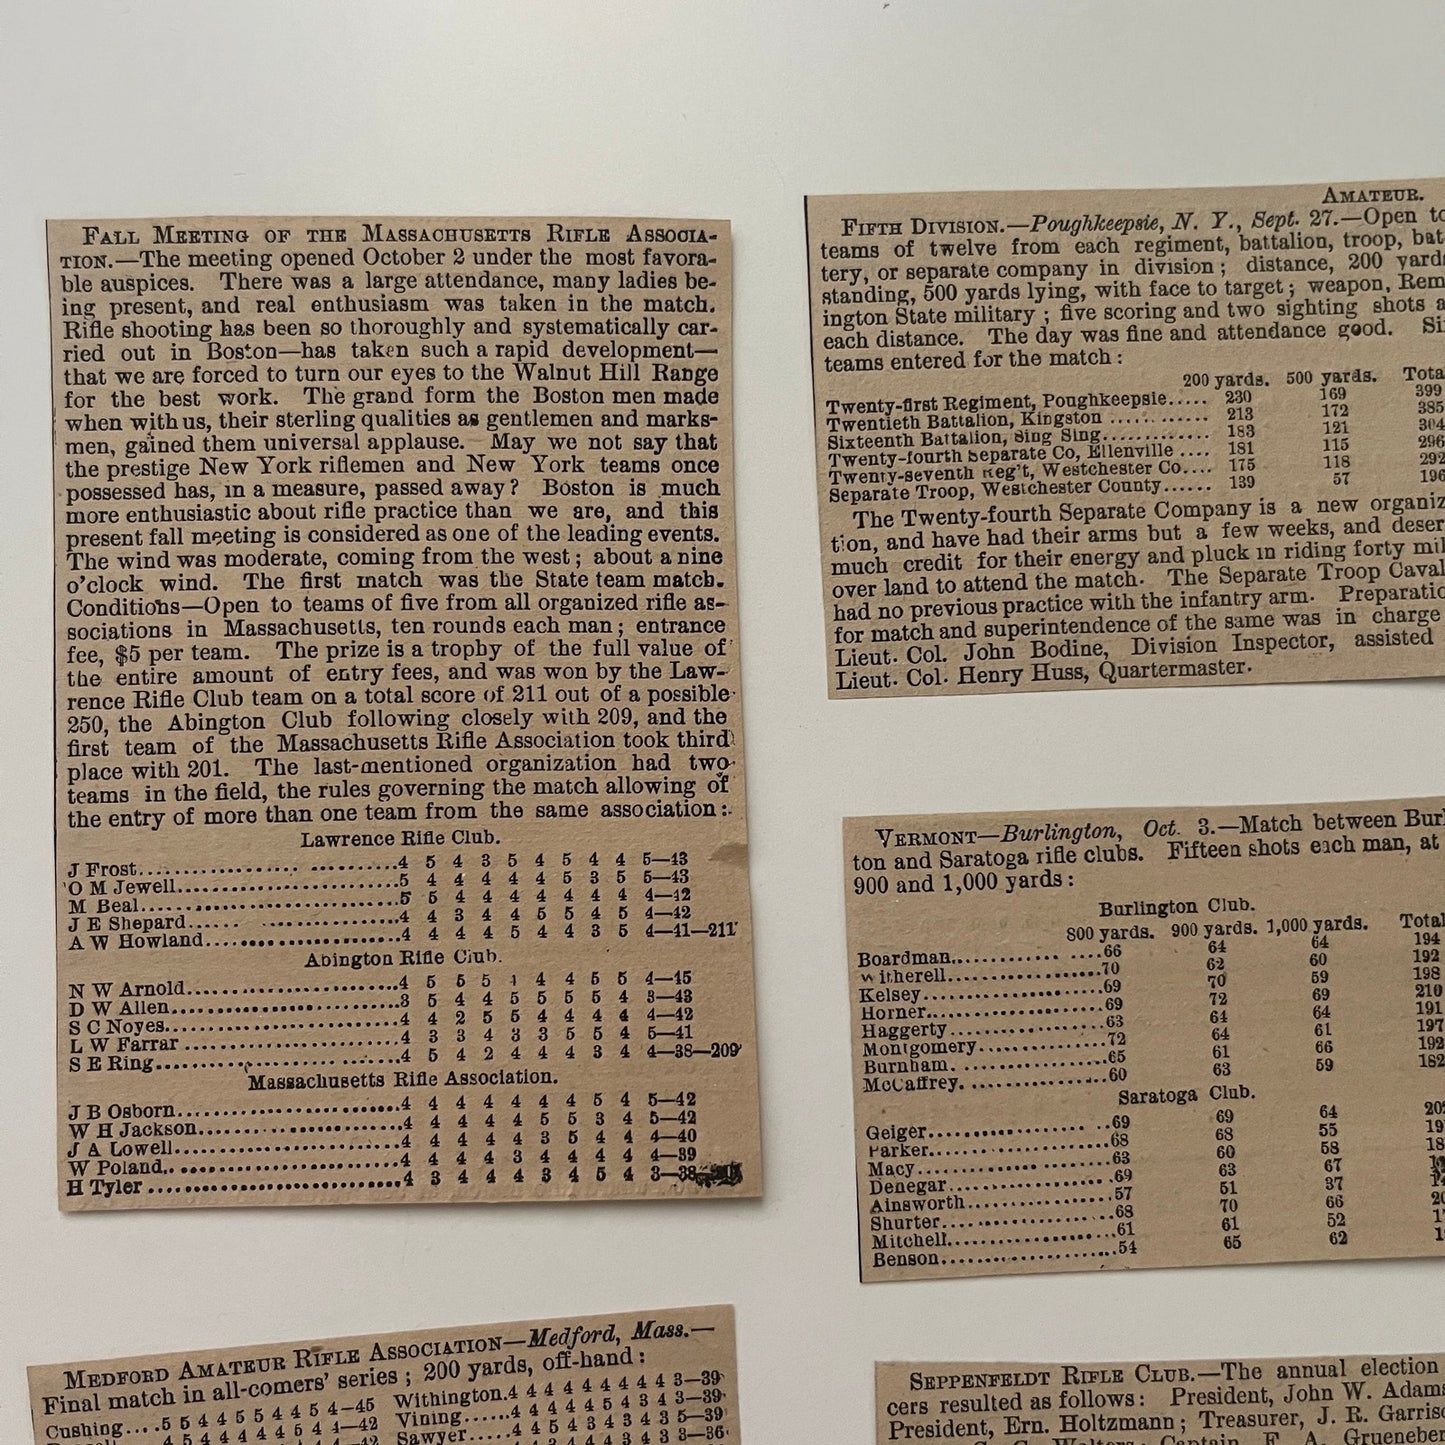 FALL MEETING OF THE MASSACHUSETTS RIFLE ASSOCIA-
TION.—The meeting opened October 2 under the most favora-
ble auspices. There was a large attendance, many ladies be-
ing present, and real enthusiasm was taken in the match.
Rifle shooting has been so thoroughly and systematically car-
ried out in Boston—has taken such a rapid development—
that we are forced to turn our eyes to the Walnut Hill Range
for the best work. The grand form the Boston men made
when with us, their sterling qualities as gentlemen and marks-
men, gained them universal applause. May we not say that
the prestige New York riflemen and New York teams once
possessed has, in a measure, passed away? Boston is much
more enthusiastic about rifle practice than we are, and this
present fall meeting is considered as one of the leading events.
The wind was moderate, coming from the west; about a nine
o'clock wind. The first match was the State team match.
Conditions—Open to teams of five from all organized rifle as-
sociations in Massachusetts, ten rounds each man; entrance
fee, $5 per team. The prize is a trophy of the full value of
the entire amount of entry fees, and was won by the Law-
rence Rifle Club team on a total score of 211 out of a possible
250, the Abington Club following closely with 209, and the
first team of the Massachusetts Rifle Association took third
place with 201. The last-mentioned organization had two
teams in the field, the rules governing the match allowing of
the entry of more than one team from the same association:
Lawrence Rifle Club.
J Frost..........4 5 4 3 5 4 5 4 4 5—43
O M Jewell..........5 4 4 4 4 4 5 3 5 5—43
M Beal..........5 5 4 4 4 4 4 4 4 4—42
J E Shepard..........4 4 3 4 4 5 5 4 5 4—42
A W Howland..........4 4 4 4 5 4 4 3 5 4—41—211
Abington Rifle Club.
N W Arnold..........4 5 5 5 4 4 4 5 5 4—45
D W Allen..........3 5 4 4 5 5 5 5 4 3—43
S C Noyes..........4 4 2 5 5 4 4 4 4 4—42
L W Farrar..........4 3 3 4 3 3 5 5 4 5—41
S E Ring..........4 5 4 2 4 4 4 3 4 4—38—209
Massachusetts Rifle Association.
J B Osborn..........4 4 4 4 4 4 4 5 4 5—42
W H Jackson..........4 4 4 4 4 4 5 5 3 4 5—42
J A Lowell..........4 4 4 4 4 3 5 4 4 4—40
W Poland..........4 4 4 4 3 4 4 4 4 4—39
H Tyler..........4 3 4 4 4 3 4 5 4 3—38
AMATEUR.
FIFTH DIVISION.—Poughkeepsie, N. Y., Sept. 27.—Open to
teams of twelve from each regiment, battalion, troop, bat
tery, or separate company in division; distance, 200 yards
standing, 500 yards lying, with face to target; weapon, Rem
ington State military; five scoring and two sighting shots a
each distance. The day was fine and attendance good. Si
teams entered for the match:
200 yards. 500 yards. Tota
Twenty-first Regiment, Poughkeepsie..... 230 169 399
Twentieth Battalion, Kingston .......... 213 172 385
Sixteenth Battalion, Sing Sing.......... 183 121 304
Twenty-fourth Separate Co, Ellenville .... 181 115 296
Twenty-seventh Reg't, Westchester Co.... 175 118 292
Separate Troop, Westchester County...... 139 57 196
The Twenty-fourth Separate Company is a new organiz
tion, and have had their arms but a few weeks, and deser
much credit for their energy and pluck in riding forty mil
over land to attend the match. The Separate Troop Caval
had no previous practice with the infantry arm. Preparatio
for match and superintendence of the same was in charge
Lieut. Col. John Bodine, Division Inspector, assisted
Lieut. Col. Henry Huss, Quartermaster.
VERMONT—Burlington, Oct. 3.—Match between Burl
ton and Saratoga rifle clubs. Fifteen shots each man, at
900 and 1,000 yards:
Burlington Club.
800 yards. 900 yards. 1,000 yards. Total
Boardman..........66 64 64 194
Witherell..........70 62 60 192
Kelsey..........69 70 59 198
Horner..........69 72 69 210
Haggerty..........63 64 64 191
Montgomery..........72 64 61 197
Burnham..........65 61 66 192
McCaffrey..........60 63 59 182
Saratoga Club.
Geiger..........69 69 64 202
Parker..........68 68 55 19
Macy..........63 60 58 18
Denegar..........69 63 67
Ainsworth..........57 51 37 14
Shurter..........68 70 66 20
Mitchell..........61 61 52 17
Benson..........54 65 62 1
MEDFORD AMATEUR RIFLE ASSOCIATION—Medford, Mass.—
Final match in all-comers' series; 200 yards, off-hand:
Cushing....5 5 4 4 5 5 4 4 5 4—45 Withington.4 4 4 4 4 4 4 4 4 3—39
4 5 4 4 4 4 4 5 4 4—42 Vining......4 4 4 4 4 5 4 3 4 3—39
Sawyer.....4 4 5 4 3 4 3 4 3 5—39
SEPPENFELDT RIFLE CLUB.—The annual election
cers resulted as follows: President, John W. Adams
President, Ern. Holtzmann; Treasurer, J. R. Garriso
Captain, F. A. Grueneber